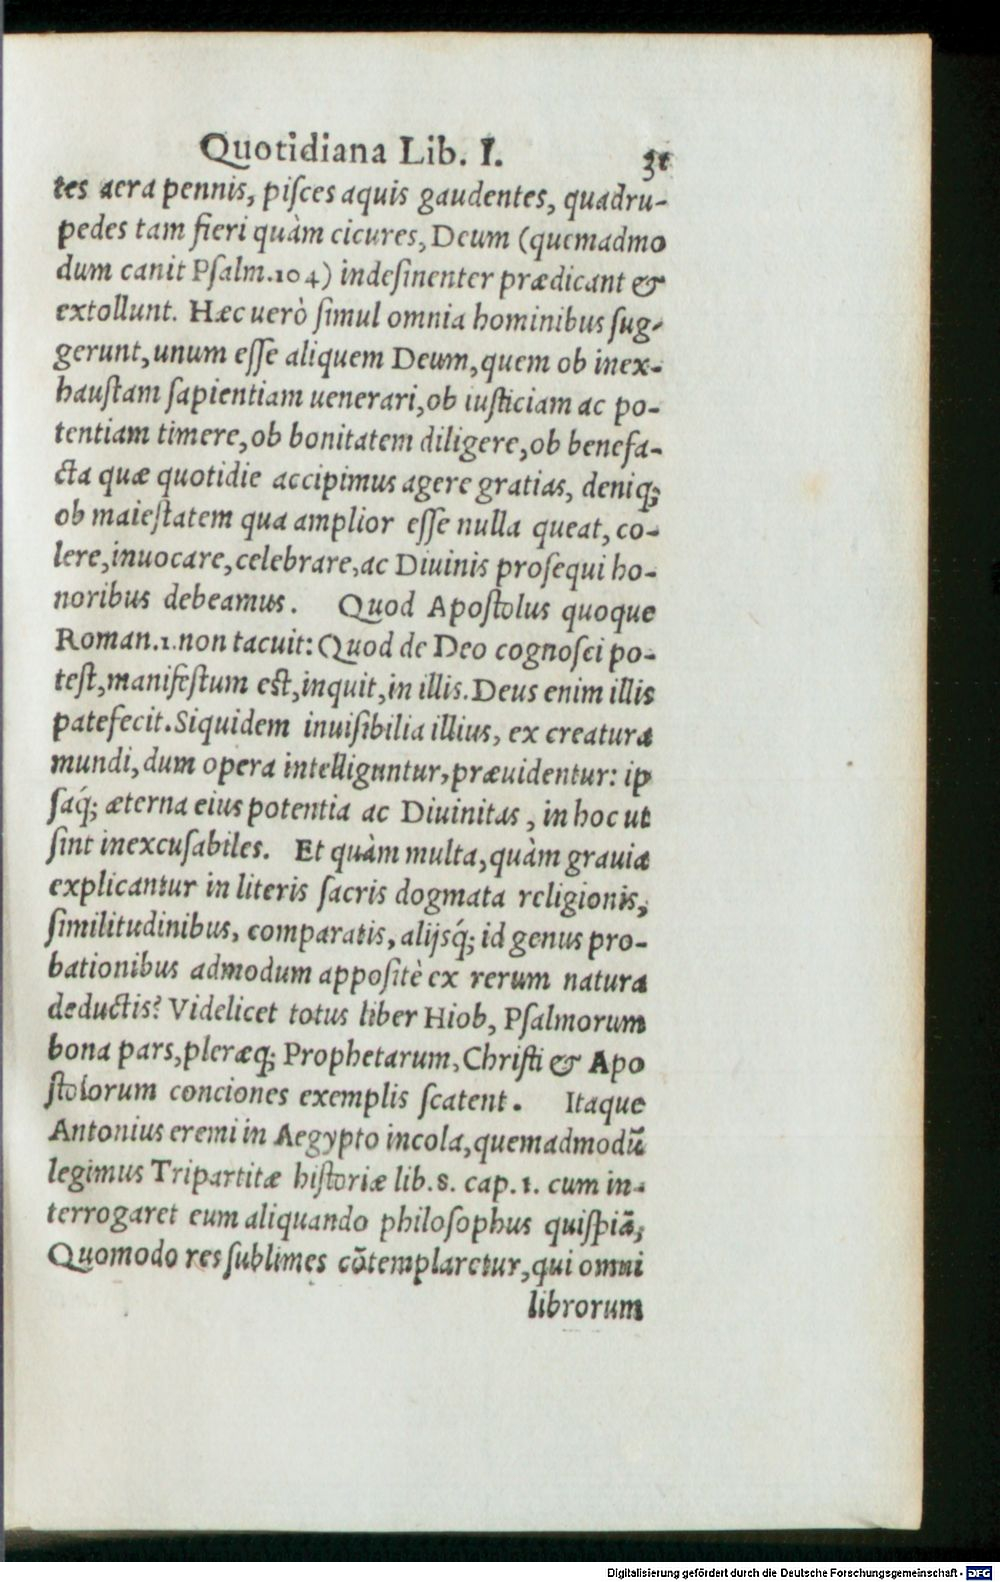 Quotidiana Lib. I. 31
tes aera pennis, piſces aquis gaudentes, quadru-
pedes tam fieri quàm cicures, Deum (quemadmo
dum canit Pſalm.104) indeſinenter prædicant &
extollunt. Hæc uerò ſimul omnia hominibus ſug-
gerunt, unum eſſe aliquem Deum, quem ob inex-
hauſtam ſapientiam uenerari, ob iuſticiam ac po-
tentiam timere, ob bonitatem diligere, ob benefa-
cta quæ quotidie accipimus agere gratias, deniq;
ob maieſtatem qua amplior eſſe nulla queat, co-
lere, inuocare, celebrare, ac Diuinis proſequi ho-
noribus debeamus. Quod Apoſtolus quoque
Roman.1.non tacuit: Quod de Deo cognoſci po-
teſt, manifeſtum eſt, inquit, in illis. Deus enim illis
patefecit. Siquidem inuiſibilia illius, ex creatura
mundi, dum opera intelliguntur, præuidentur: ip
ſaq́; æterna eius potentia ac Diuinitas, in hoc ut
ſint inexcuſabiles. Et quàm multa, quàm grauia
explicantur in literis ſacris dogmata religionis,
ſimilitudinibus, comparatis, alijsq́; id genus pro-
bationibus admodum appoſitè ex rerum natura
deductis? Videlicet totus liber Hiob, Pſalmorum
bona pars, pleræq; Prophetarum, Chriſti & Apo
ſtolorum conciones exemplis ſcatent. Itaque
Antonius eremi in Aegypto incola, quemadmodũ
legimus Tripartitæ hiſtoriæ lib.8. cap.1. cum in-
terrogaret eum aliquando philoſophus quiſpiã,
Quomodo res ſublimes cõtemplaretur, qui omni
librorum
Digitalisierung gefördert durch die Deutsche Forschungsgemeinschaft - DFG